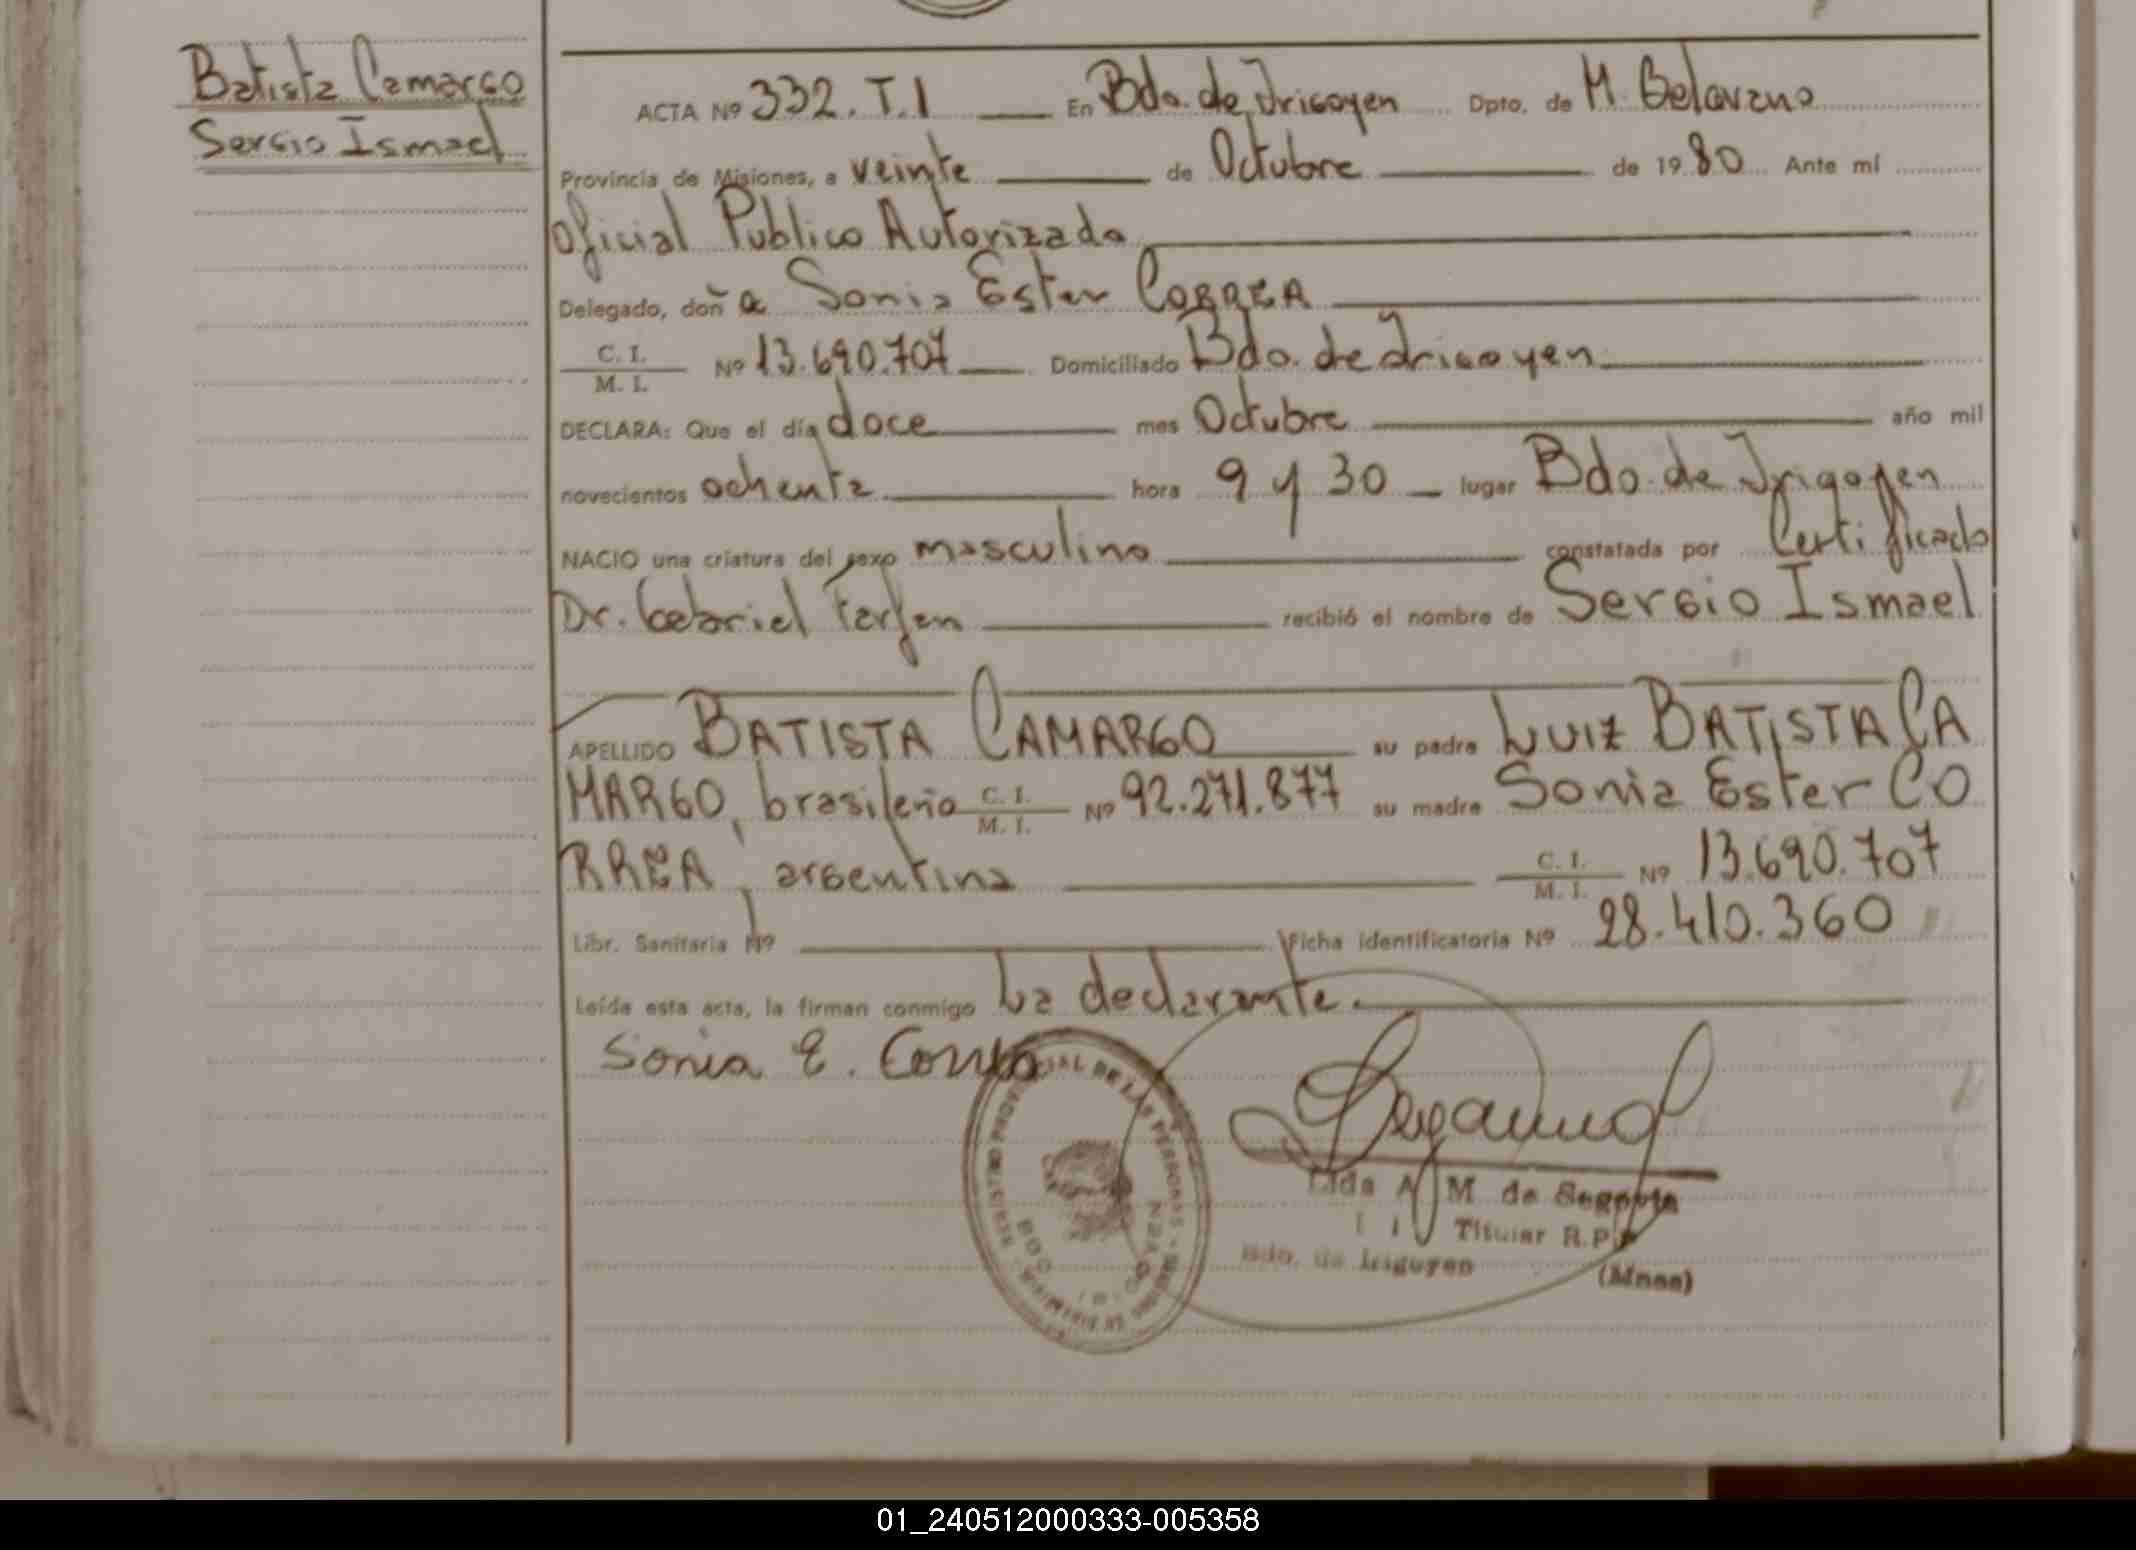 Batista Camargo
Sergio Ismael
ACTA Nº 332. T. I En Bdo. de Irigoyen Dpto. de M. Belgrano
Provincia de Misiones, a veinte de Octubre de 1980 Ante mí
Oficial Público Autorizado
Delegado, doña Sonia Ester CORREA
C. I.
M. I. Nº 13.690.707 Domiciliado Bdo. de Irigoyen
DECLARA: Que el día doce mes Octubre año mil
novecientos ochenta hora 9 y 30 lugar Bdo. de Irigoyen
NACIO una criatura del sexo masculino constatada por Certificado
Dr. Gabriel Farfan recibió el nombre de Sergio Ismael
APELLIDO BATISTA CAMARGO su padre LUIZ BATISTA CA
MARGO, brasileño C. I. M. I. Nº 92.271.877 su madre Sonia Ester CO
RREA, argentina C. I. M. I. Nº 13.690.707
Libr. Sanitaria Nº Ficha identificatoria Nº 28.410.360
Leída esta acta, la firman conmigo La declarante.
Sonia E. Correa
A M de Segovia
Titular R.P.
Bdo. de Irigoyen (Mnes)
01_240512000333-005358